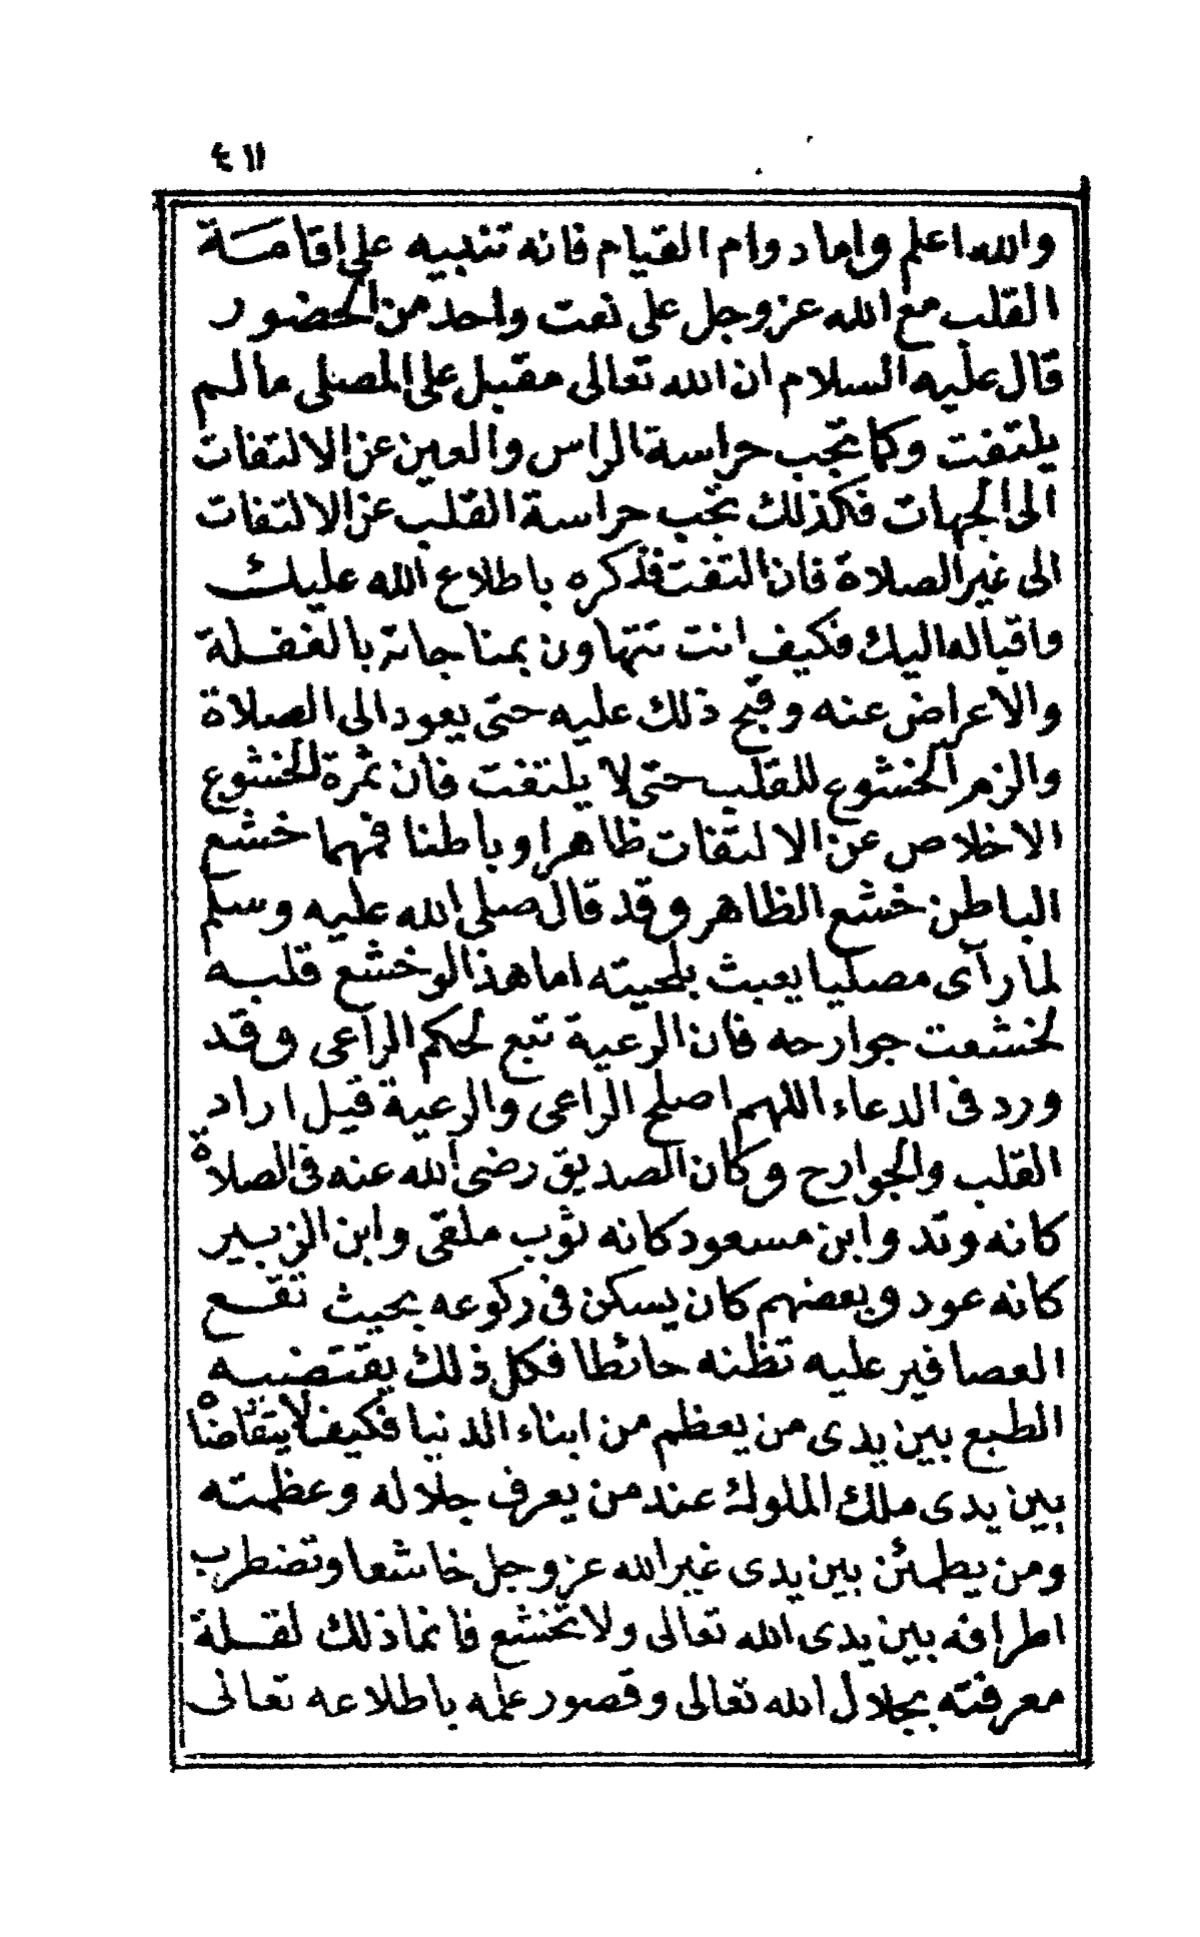 ٤١١
والله اعلم واما دوام القيام فانه تنبيه على اقامة
القلب مع الله عز وجل على نعت واحد من الحضور
قال عليه السلام ان الله تعالى مقبل على المصلى ما لم
يلتفت وكما تجب حراسة الراس والعين عن الالتفات
الى الجهات فكذلك تجب حراسة القلب عن الالتفات
الى غير الصلاة فان التفت فذكره باطلاع الله عليك
واقباله اليك فكيف انت تتهاون بمناجاته بالغفلة
والاعراض عنه وقبح ذلك عليه حتى يعود الى الصلاة
والزم الخشوع للقلب حتى لا يلتفت فان ثمرة الخشوع
الاخلاص عن الالتفات ظاهرا وباطنا فمهما خشع
الباطن خشع الظاهر وقد قال صلى الله عليه وسلم
لما رآى مصليا يعبث بلحيته اما هذا لو خشع قلبه
لخشعت جوارحه فان الرعية تتبع لحكم الراعى وقد
ورد فى الدعاء اللهم اصلح الراعى والرعية قيل اراد
القلب والجوارح وكان الصديق رضى الله عنه فى الصلاة
كانه وتد وابن مسعود كانه ثوب ملقى وابن الزبير
كانه عود وبعضهم كان يسكن فى ركوعه بحيث تقع
العصافير عليه تظنه حائطا فكل ذلك يقتضيه
الطبع بين يدى من يعظم من ابناء الدنيا فكيف لا يتقاضاه
بين يدى ملك الملوك عند من يعرف جلاله وعظمته
ومن يطمئن بين يدى غير الله عز وجل خاشعا وتضطرب
اطرافه بين يدى الله تعالى ولا تخشع فانما ذلك لقلة
معرفته بجلال الله تعالى وقصور علمه باطلاعه تعالى